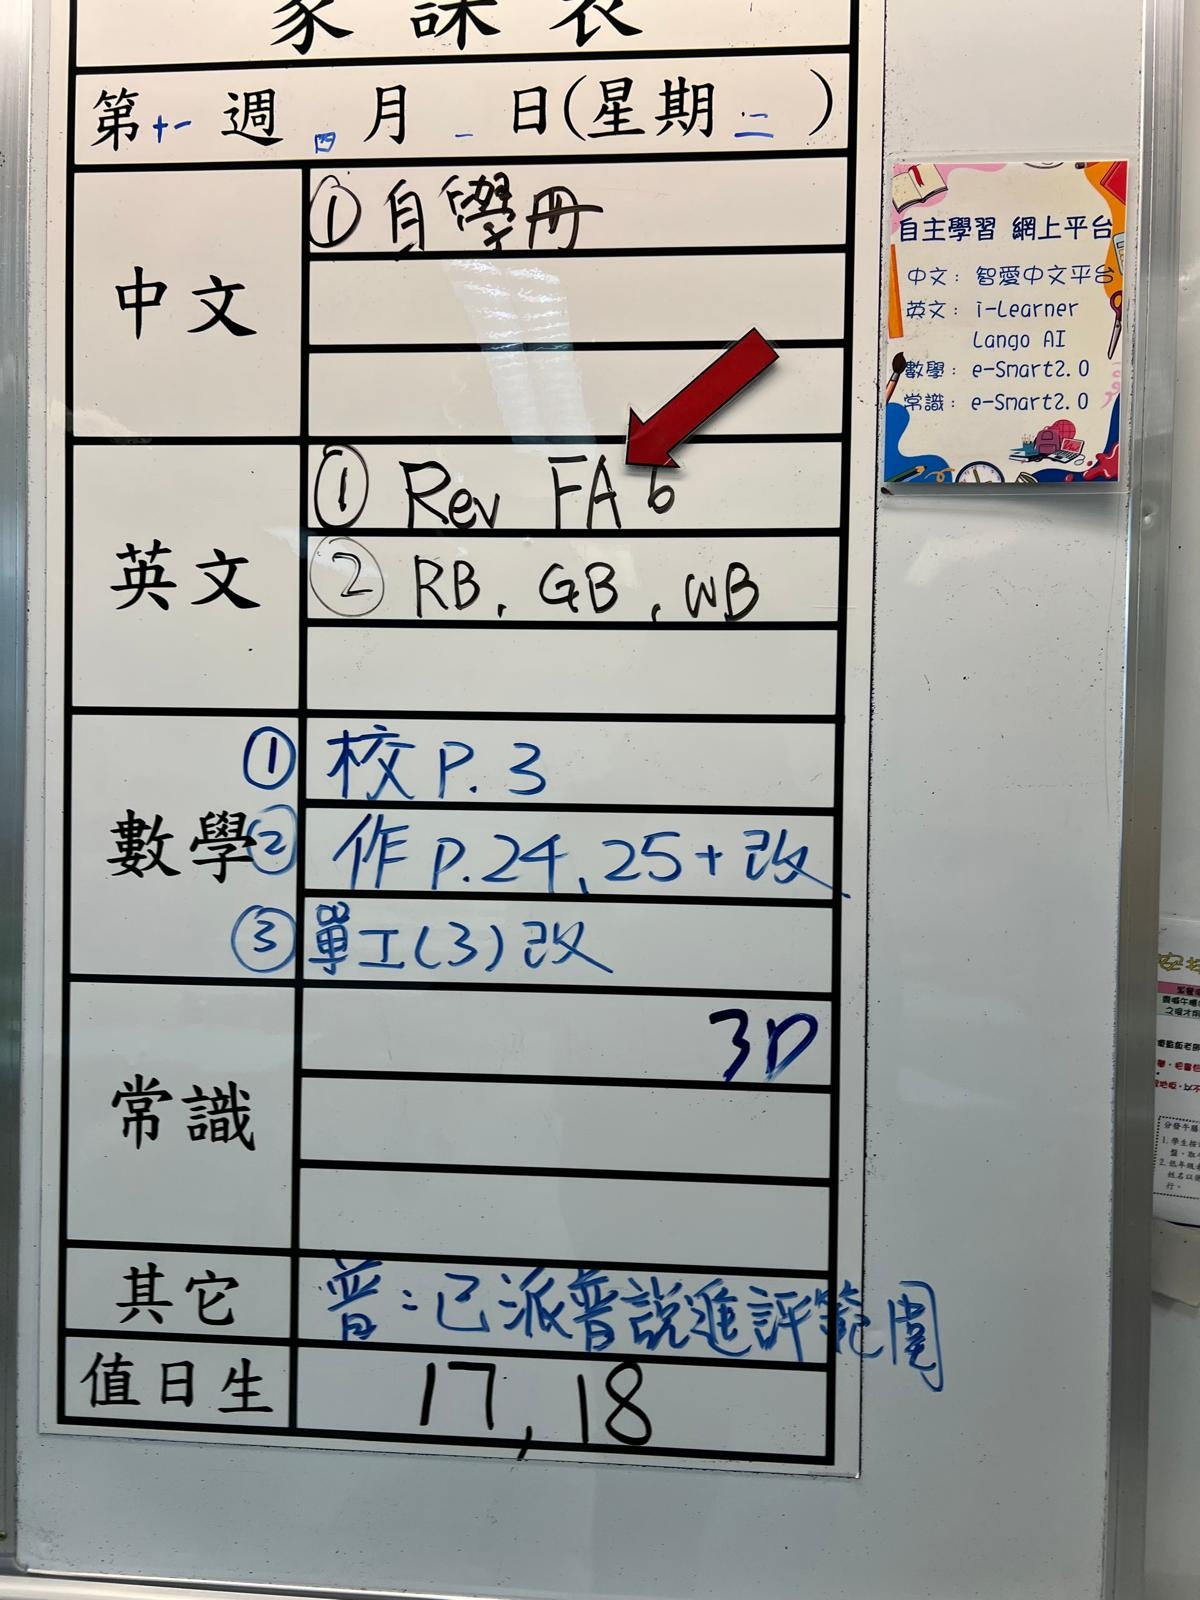 家課表
第十一週 四月一日(星期二)
中文
① 自學冊
英文
① Rev FA 6
② RB, GB, WB
數學
① 校 P. 3
② 作 P.24、25+改
③ 單工(3)改
常識
3D
其它
普：已派普說進評範圍
值日生
17, 18
自主學習 網上平台
中文： 智愛中文平台
英文： i-Learner
Lango AI
數學： e-Smart2.0
常識： e-Smart2.0
分發午膳
1. 學生按
2. 低年級
行。